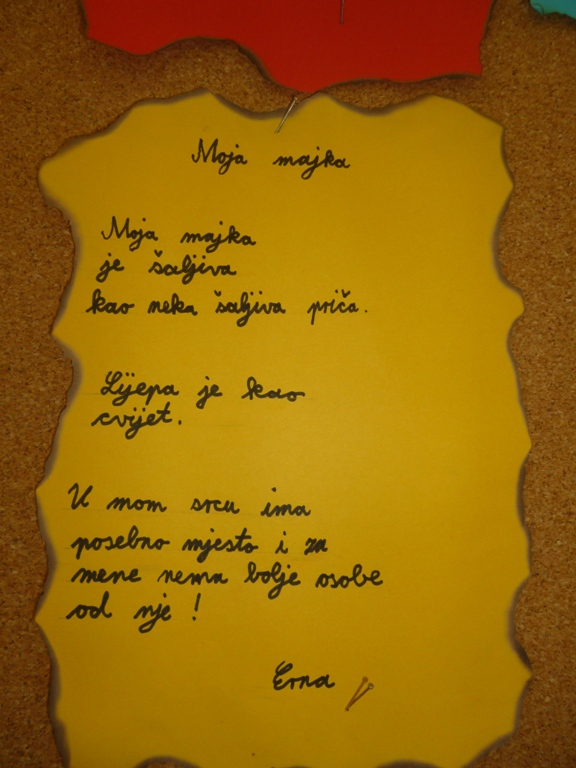 Moja majka
Moja majka
je šaljiva
kao neka šaljiva priča.
Lijepa je kao
cvijet.
U mom srcu ima
posebno mjesto i za
mene nema bolje osobe
od nje!
Erna